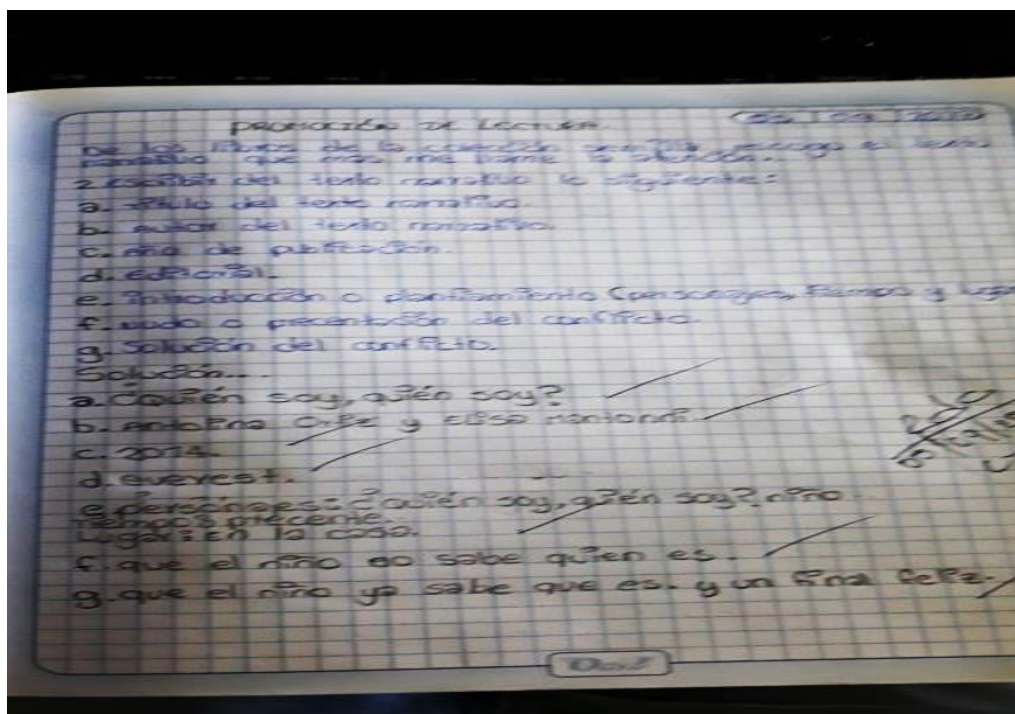 PROMOCIÓN DE LECTURA.
De los libros de la colección semilla escoge el texto
narrativo que más me llame la atención.
2 escribir del texto narrativo lo siguiente:
a. título del texto narrativo.
b. autor del texto narrativo.
c. año de publicación.
d. editorial.
e. introducción o plantiamiento (personajes, tiempo y lugar
f. nudo o precentación del conflicto.
g. solución del conflicto.
Solución...
a. ¿quién soy, quién soy?
b. Antolina y Elisa
c. 2014.
d. everest.
e. personajes: ¿quién soy, quién soy? niño
tiempos precente
Lugar: en la casa.
f. que el niño no sabe quien es.
g. que el niño ya sabe que es. y un final feliz.